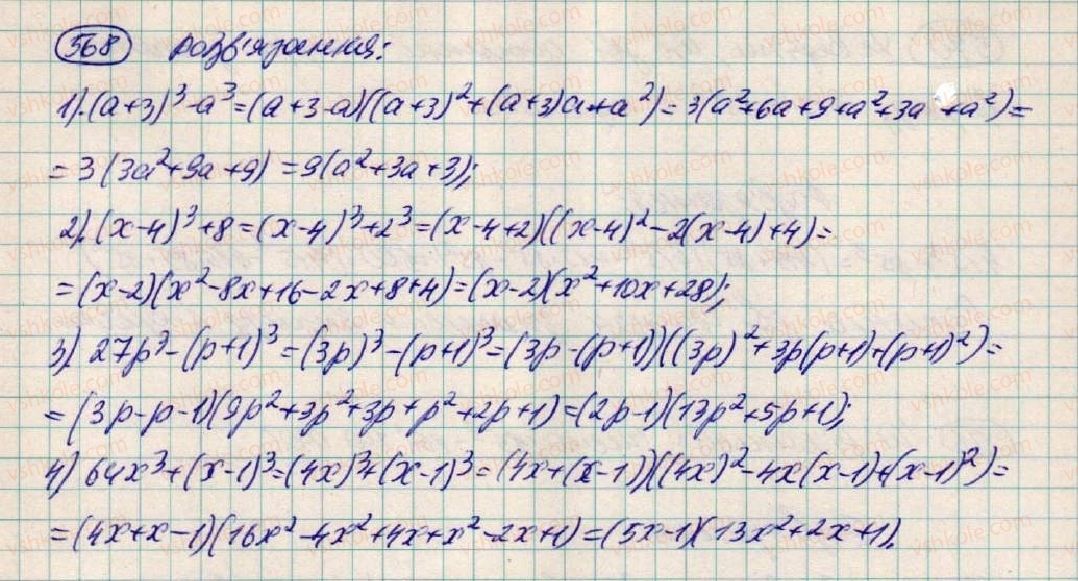 568 Розв'язання:
1). (a+3)³-a³=(a+3-a)((a+3)²+(a+3)a+a²)=3(a²+6a+9+a²+3a+a²)=
=3(3a²+9a+9)=9(a²+3a+3);
2). (x-4)³+8=(x-4)³+2³=(x-4+2)((x-4)²-2(x-4)+4)=
=(x-2)(x²-8x+16-2x+8+4)=(x-2)(x²+10x+28);
3) 27p³-(p+1)³=(3p)³-(p+1)³=(3p-(p+1))((3p)²+3p(p+1)+(p+1)²)=
=(3p-p-1)(9p²+3p²+3p+p²+2p+1)=(2p-1)(13p²+5p+1);
4) 64x³+(x-1)³=(4x)³+(x-1)³=(4x+(x-1))((4x)²-4x(x-1)+(x-1)²)=
=(4x+x-1)(16x²-4x²+4x+x²-2x+1)=(5x-1)(13x²+2x+1).